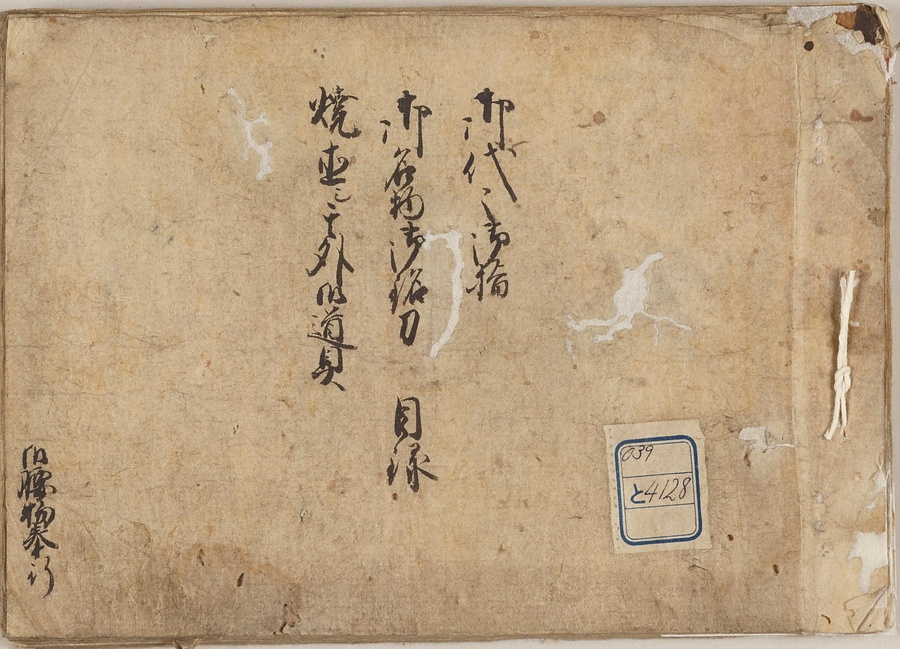 御代々御指
御名物御鎺刀 目録
焼直シ其外御道具
御腰物奉行
039
と4128